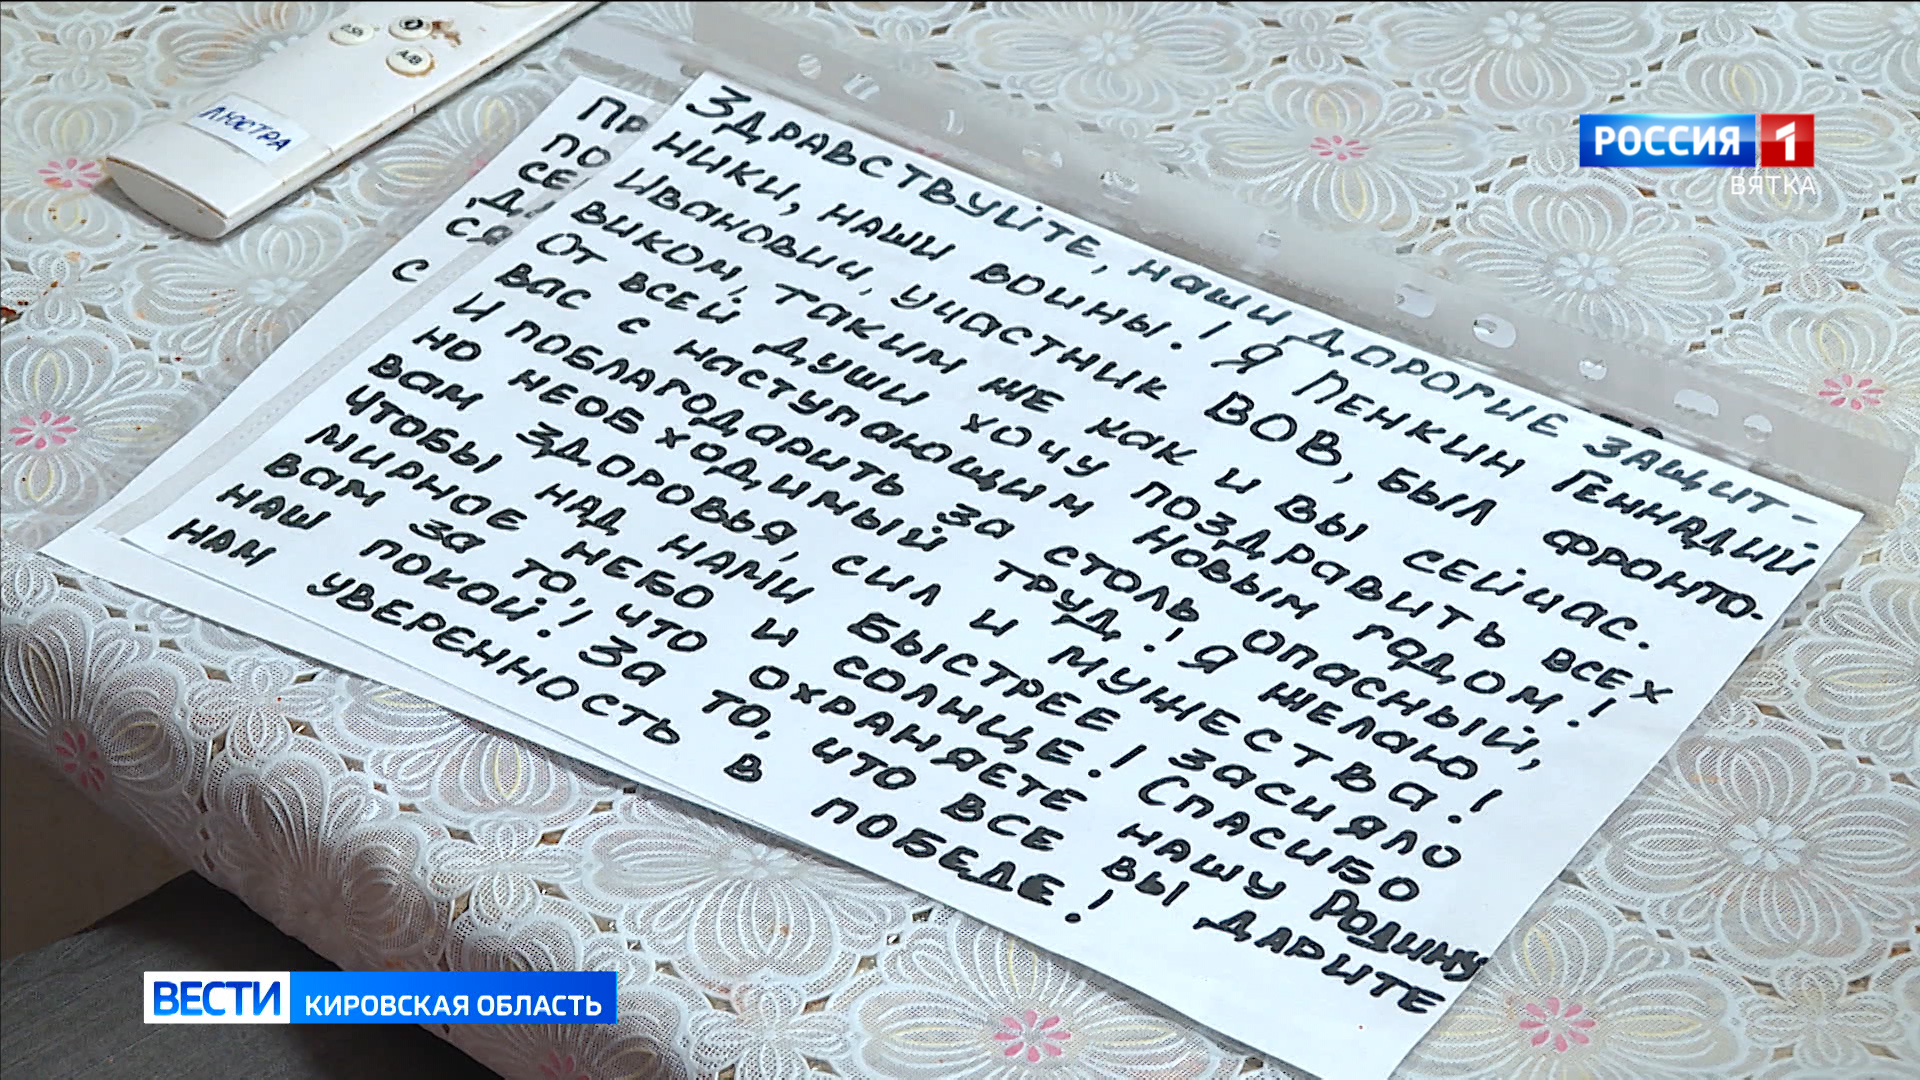 ЛЮСТРА
2.5h
A/B
РОССИЯ 1
ВЯТКА
ПР
ПО
СЕ
СЯ
С
ЗДРАВСТВУЙТЕ, НАШИ ДОРОГИЕ ЗАЩИТ-
НИКИ, НАШИ ВОИНЫ! Я ПЕНКИН ГЕННАДИЙ
ИВАНОВИЧ, УЧАСТНИК ВОВ, БЫЛ ФРОНТО-
ВИКОМ, ТАКИМ ЖЕ КАК И ВЫ СЕЙЧАС.
ОТ ВСЕЙ ДУШИ ХОЧУ ПОЗДРАВИТЬ ВСЕХ
ВАС С НАСТУПАЮЩИМ НОВЫМ ГОДОМ!
И ПОБЛАГОДАРИТЬ ЗА СТОЛЬ ОПАСНЫЙ,
НО НЕОБХОДИМЫЙ ТРУД! Я ЖЕЛАЮ
ВАМ ЗДОРОВЬЯ, СИЛ И МУЖЕСТВА!
ЧТОБЫ НАД НАМИ БЫСТРЕЕ ЗАСИЯЛО
МИРНОЕ НЕБО И СОЛНЦЕ! СПАСИБО
ВАМ ЗА ТО, ЧТО ОХРАНЯЕТЕ НАШУ РОДИНУ
НАШ ПОКОЙ! ЗА ТО, ЧТО ВСЕ ВЫ ДАРИТЕ
НАМ УВЕРЕННОСТЬ В ПОБЕДЕ!
ВЕСТИ КИРОВСКАЯ ОБЛАСТЬ